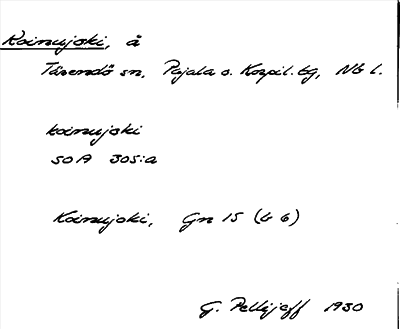 Koinujoki, å
Tärendö sn, Pajala o. Korpil. tg, Nb l.
koinujoki
SOA 305:a
Koinujoki, Gn 15 (b 6)
G. Pellijeff 1930